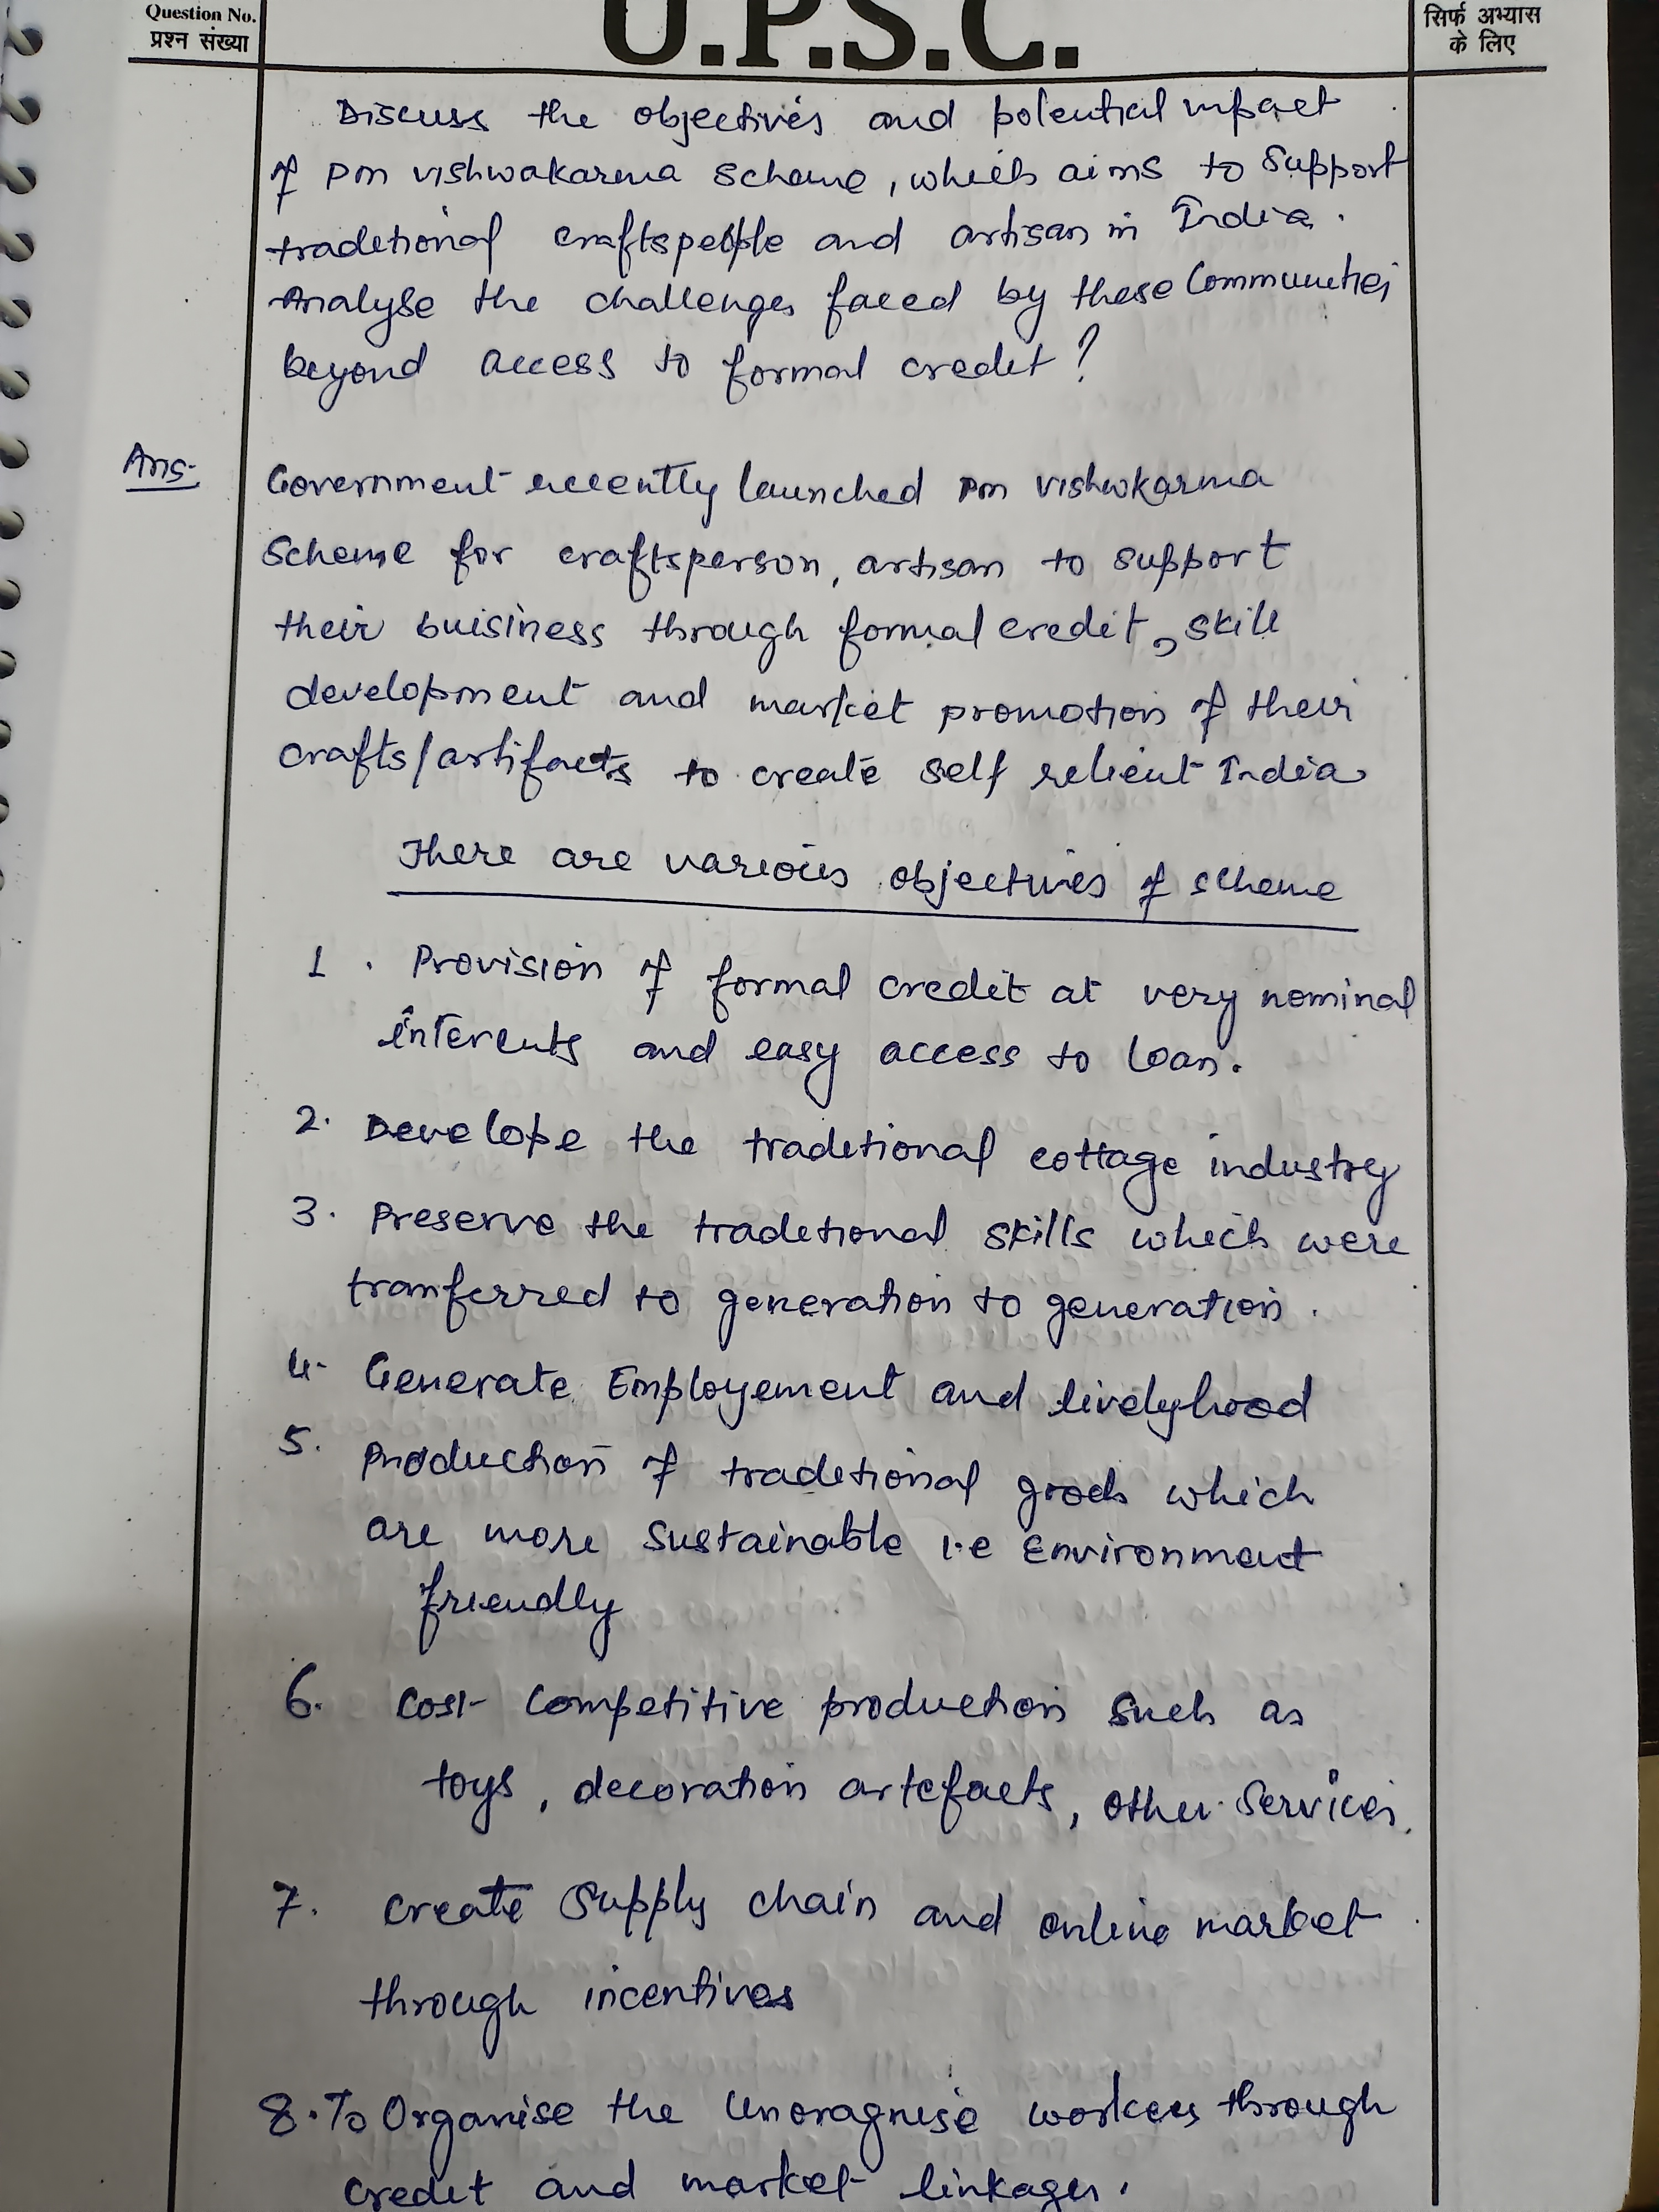 Question No.
प्रश्न संख्या
U.P.S.C.
सिर्फ अभ्यास
के लिए
Discuss the objectives and potential impact
of pm vishwakarma scheme, which aims to support
traditional craftspeople and artisan in India.
Analyse the challenges faced by these Communities
beyond access to formal credit?
Ans-
Government recently launched pm vishwkarma
Scheme for craftsperson, artisan to support
their buisiness through formal credit, skill
development and market promotion of their
crafts/artifacts to create self relient India
There are various objectives of scheme
1. Provision of formal credit at very nominal
interents and easy access to loan.
2. Develope the traditional cottage industry
3. Preserve the traditional skills which were
tranferred to generation to generation.
4. Generate Employement and livelyhood
5. Production of traditional goods which
are more sustainable i.e Environment
friendly
6. Cost competitive production such as
toys, decoration artefacts, other services.
7. create supply chain and online market
through incentives
8. To Organise the unoragnise workers through
credit and market linkages.